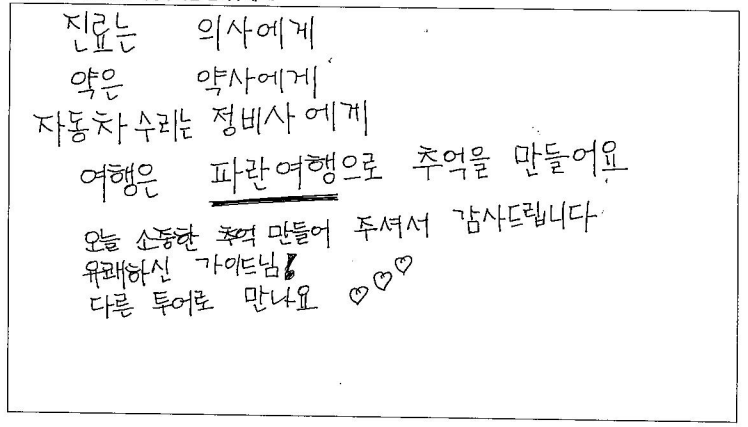 진료는 의사에게
약은 약사에게
자동차 수리는 정비사에게
여행은 파란여행으로 추억을 만들어요
오늘 소중한 추억 만들어 주셔서 감사드립니다
유쾌하신 가이드님!
다른 투어로 만나요 ♡♡♡